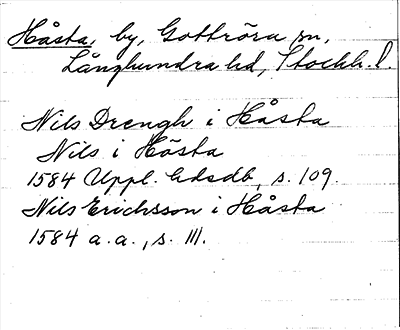 Håsta, by, Gottröra sn,
Långhundra hd, Stockh. l.
Nils Drengh i Håsta
Nils i Hösta
1584 Uppl. hdsdb, s. 109.
Nils Erichsson i Håsta
1584 a. a., s. 111.